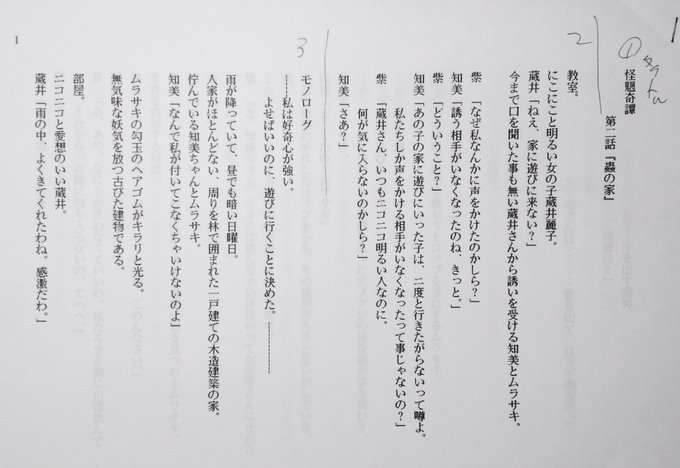 1
①タイトル
怪魍奇譚
第二話『蟲の家』
2
教室。
にこにこと明るい女の子蔵井麗子。
蔵井「ねえ、家に遊びに来ない？」
今まで口を聞いた事も無い蔵井さんから誘いを受ける知美とムラサキ。
紫　「なぜ私なんかに声をかけたのかしら？」
知美「誘う相手がいなくなったのね、きっと。」
紫　「どういうこと？」
知美「あの子の家に遊びにいった子は、二度と行きたがらないって噂よ。
私たちしか声をかける相手がいなくなったって事じゃないの？」
紫　「蔵井さん、いつもニコニコ明るい人なのに。
何が気に入らないのかしら？」
知美「さあ？」
3
モノローグ
――――私は好奇心が強い。
よせばいいのに、遊びに行くことに決めた。――――――
雨が降っていて、昼でも暗い日曜日。
人家がほとんどない、周りを林で囲まれた一戸建ての木造建築の家。
佇んでいる知美ちゃんとムラサキ。
知美「なんで私が付いてこなくちゃいけないのよ」
ムラサキの勾玉のヘアゴムがキラリと光る。
無気味な妖気を放つ古びた建物である。
部屋。
ニコニコと愛想のいい蔵井。
蔵井「雨の中、よくきてくれたわね。感激だわ。」
1